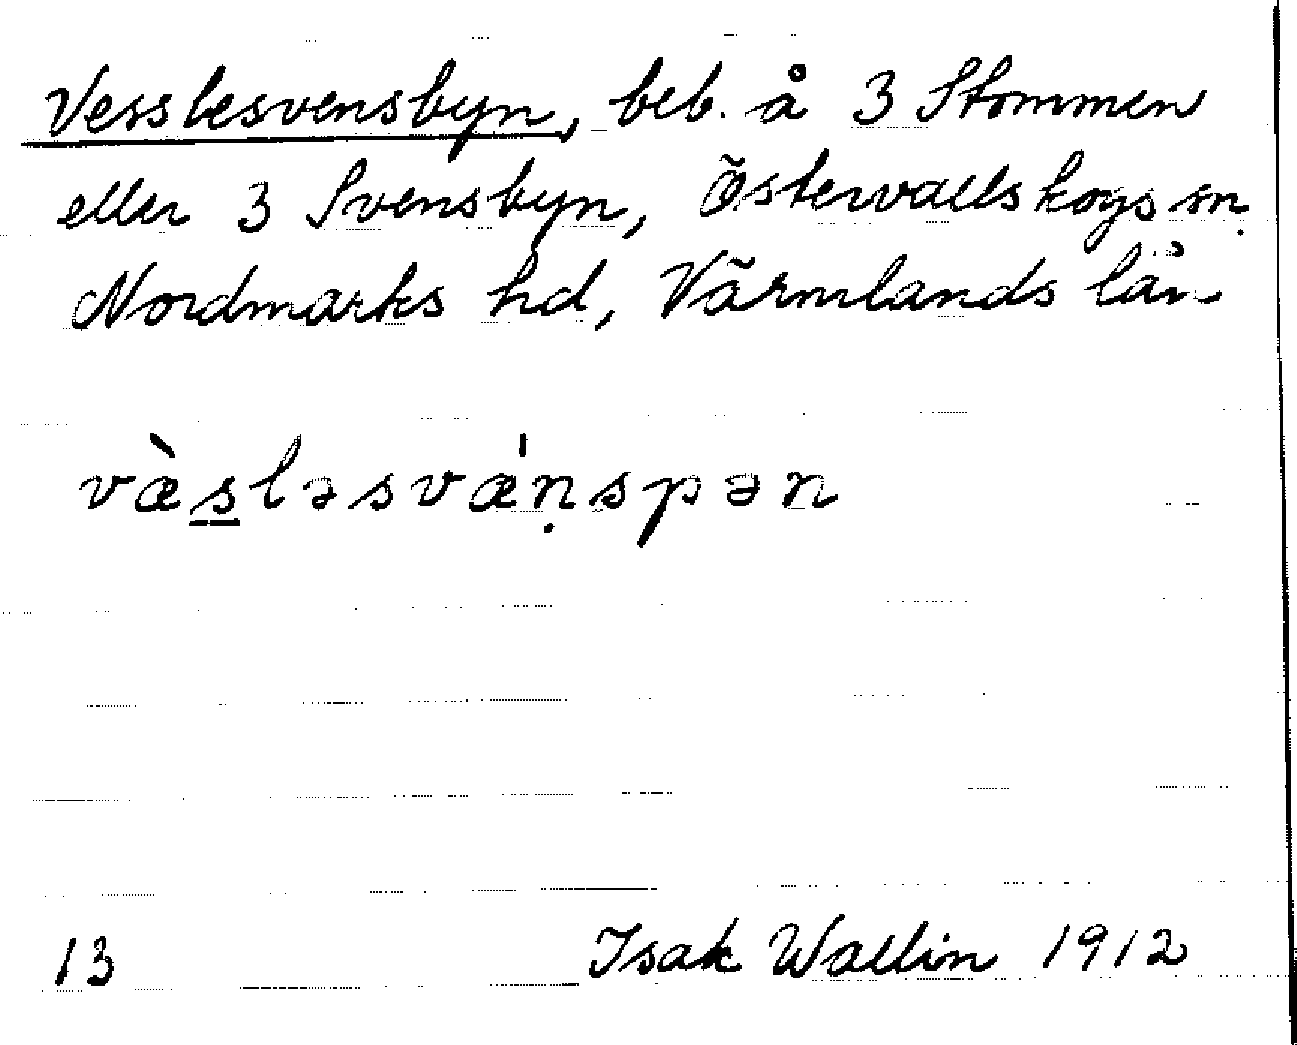 Vesslesvensbyn, beb. å 3 Stommen
eller 3 Svensbyn, Östervallskogs sn.
Nordmarks hd, Värmlands län
væ̀s̲ləsvæ̍ṇspən
13 Isak Wallin 1912